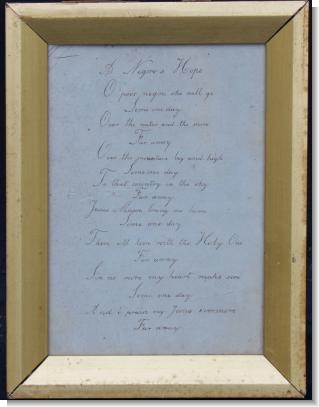 A Negro's Hope
O poor negro she will go
Some one day
Over the water and the snow
Far away
Over the mountain big and high
Some one day
To that country in the sky
Far away
Jesus bring me home
Some one day
Then ill live with the Holy One
Far away
Sin no more my heart make sore
Some one day
And I praise my Jesus evermore
Far away